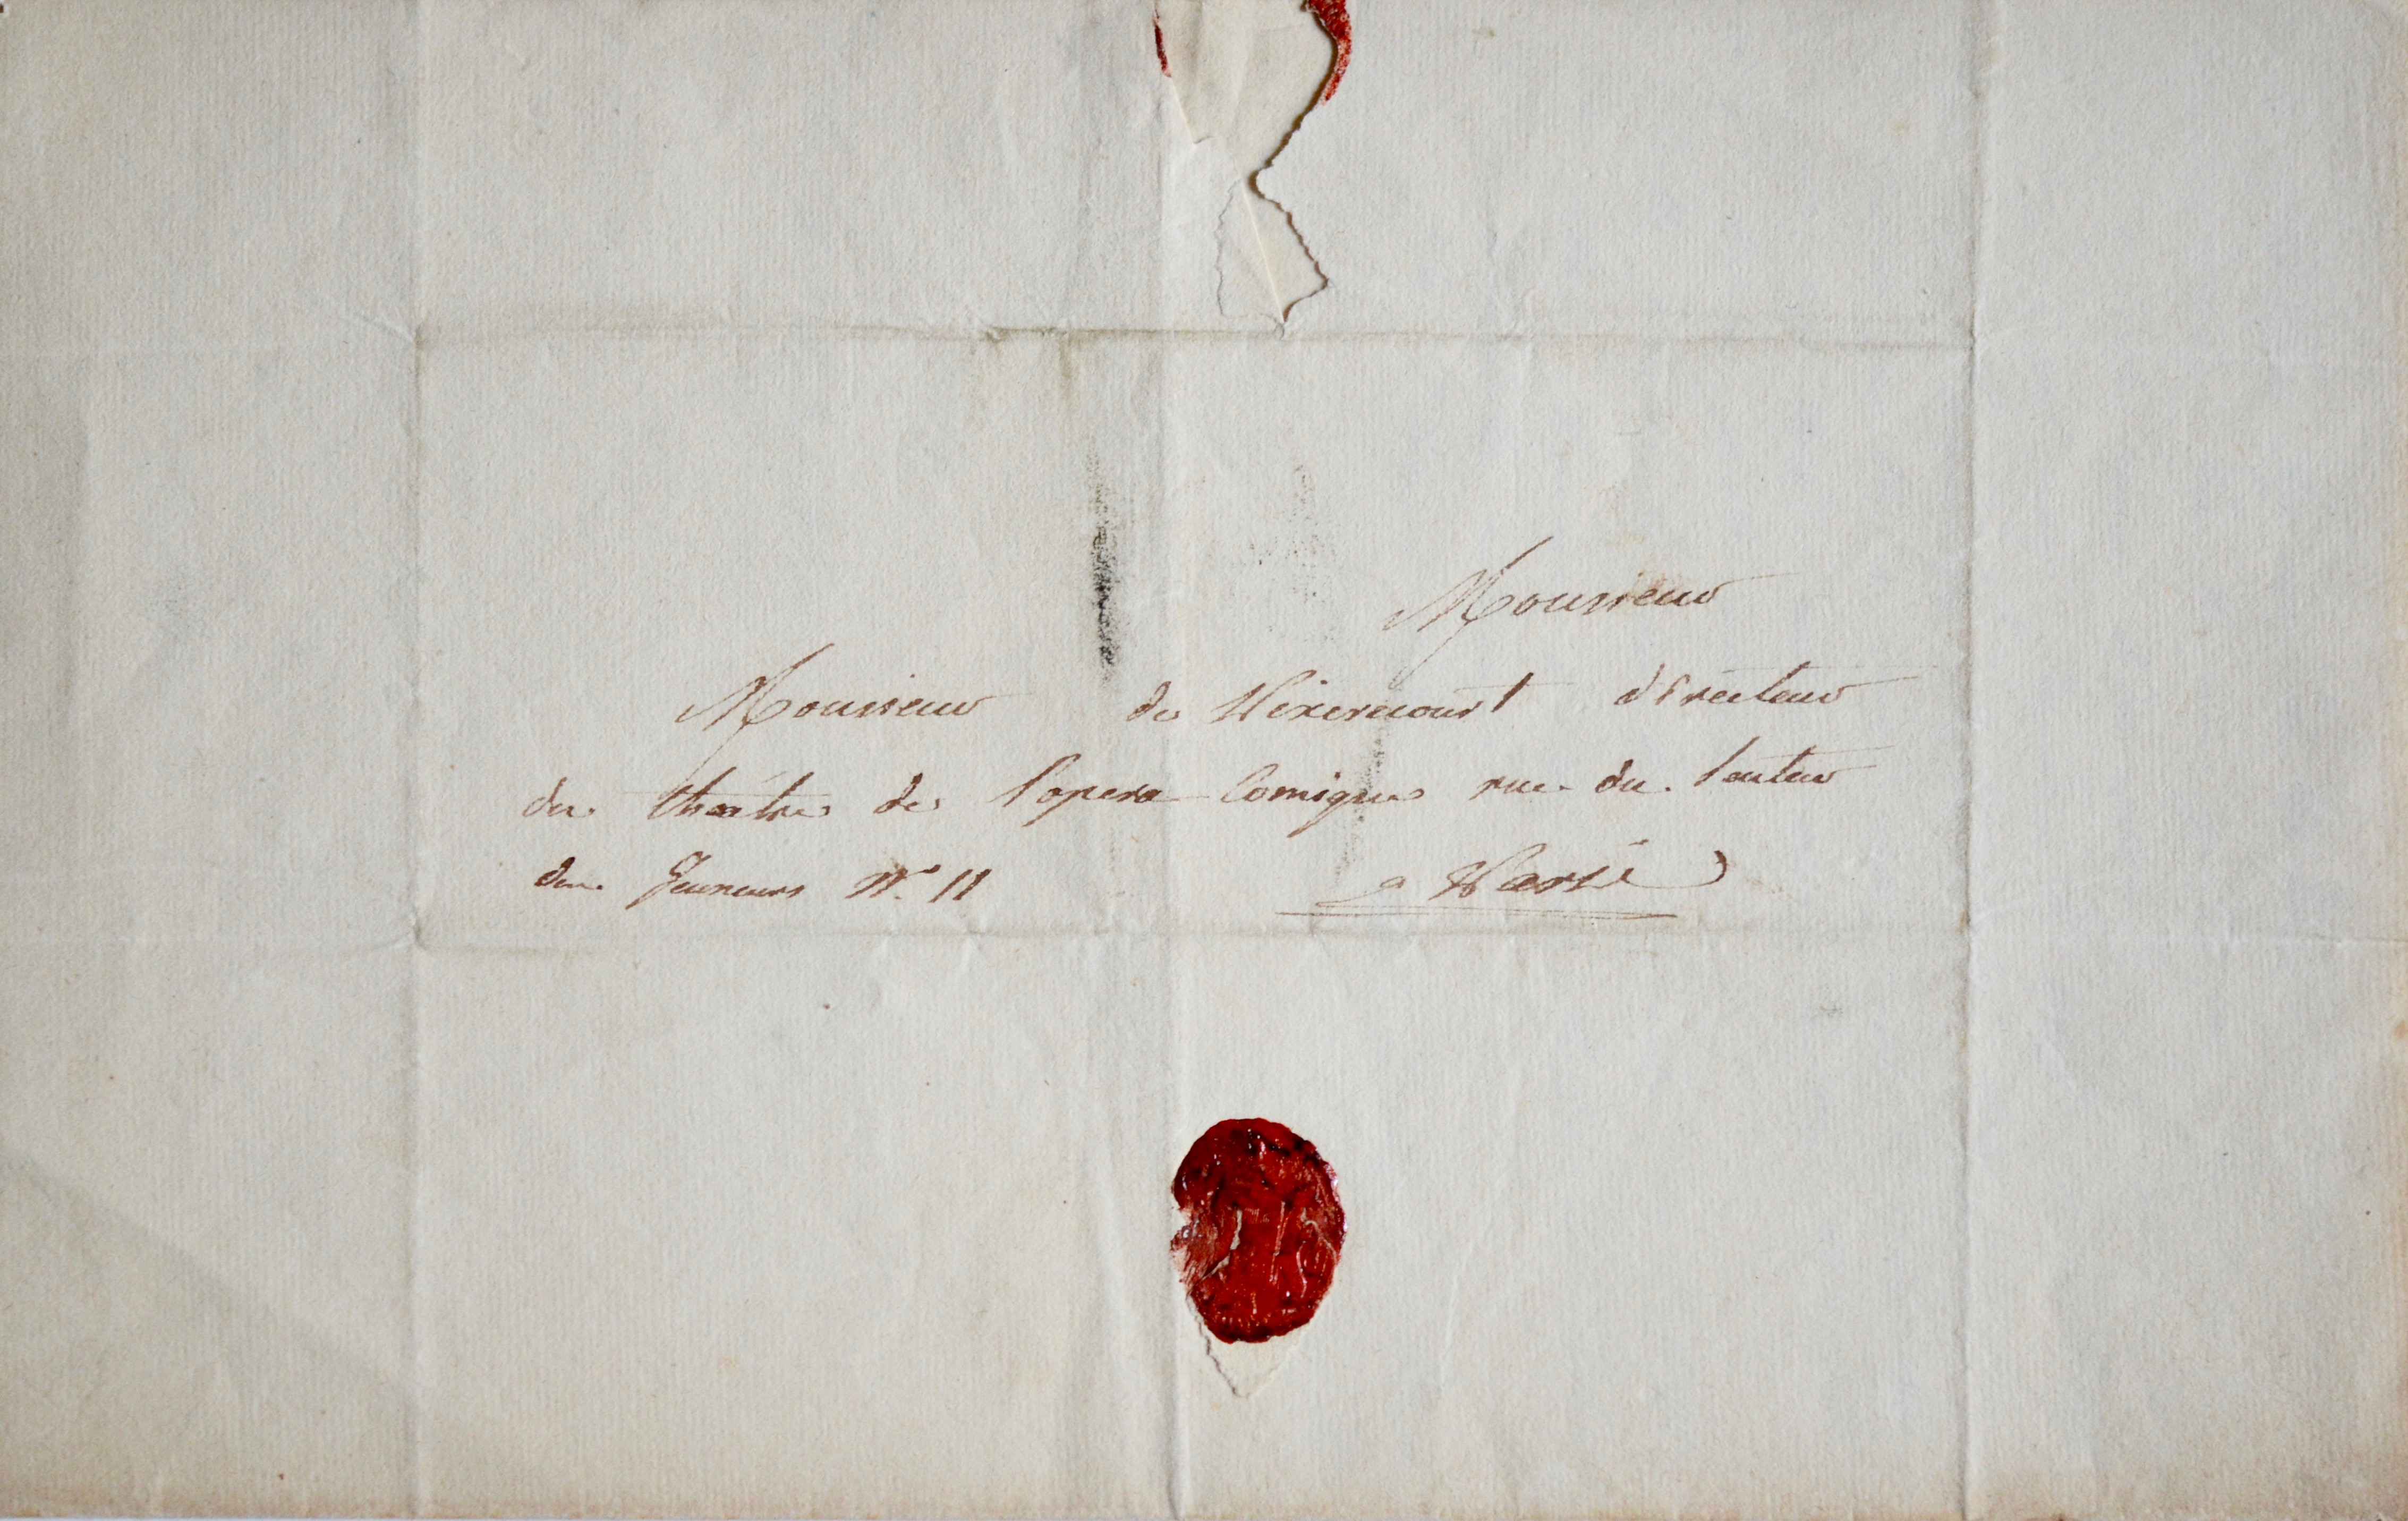 Monsieur
Monsieur de Pixerecourt directeur
du theatre de l'opera Comique rue du Sentier
des Jeuneurs N° 11 a Paris